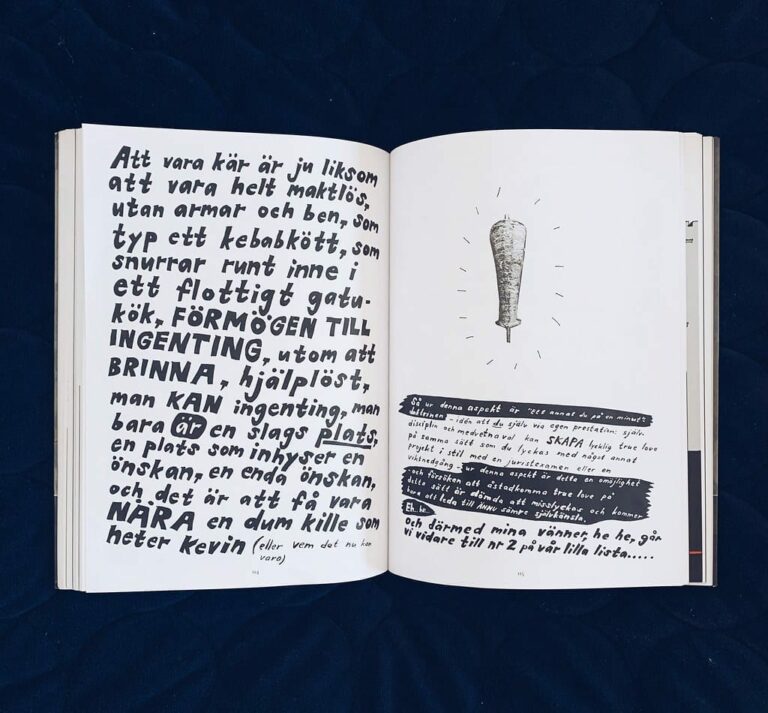 Att vara kär är ju liksom
att vara helt maktlös,
utan armar och ben, som
typ ett kebabkött, som
snurrar runt inne i
ett flottigt gatu-
kök, FÖRMÖGEN TILL
INGENTING, utom att
BRINNA, hjälplöst,
man KAN ingenting, man
bara är en slags plats,
en plats som inhyser en
önskan, en enda önskan,
och det är att få vara
NÄRA en dum kille som
heter Kevin (eller vem det nu kan
vara)
114
Så ur denna aspekt är "Ett annat du på en minut"-
doktrinen - idén att du själv via egen prestation: själv-
disciplin och medvetna val kan SKAPA lycklig true love
på samma sätt som du lyckas med något annat
projekt i stil med en juristexamen eller en
viktnedgång - ur denna aspekt är detta en omöjlighet
- och försöken att åstadkomma true love på
detta sätt är dömda att misslyckas och kommer
bara att leda till ÄNNU sämre självkänsla.
Eh.
och därmed mina vänner, he he, går
vi vidare till nr 2 på vår lilla lista.....
115